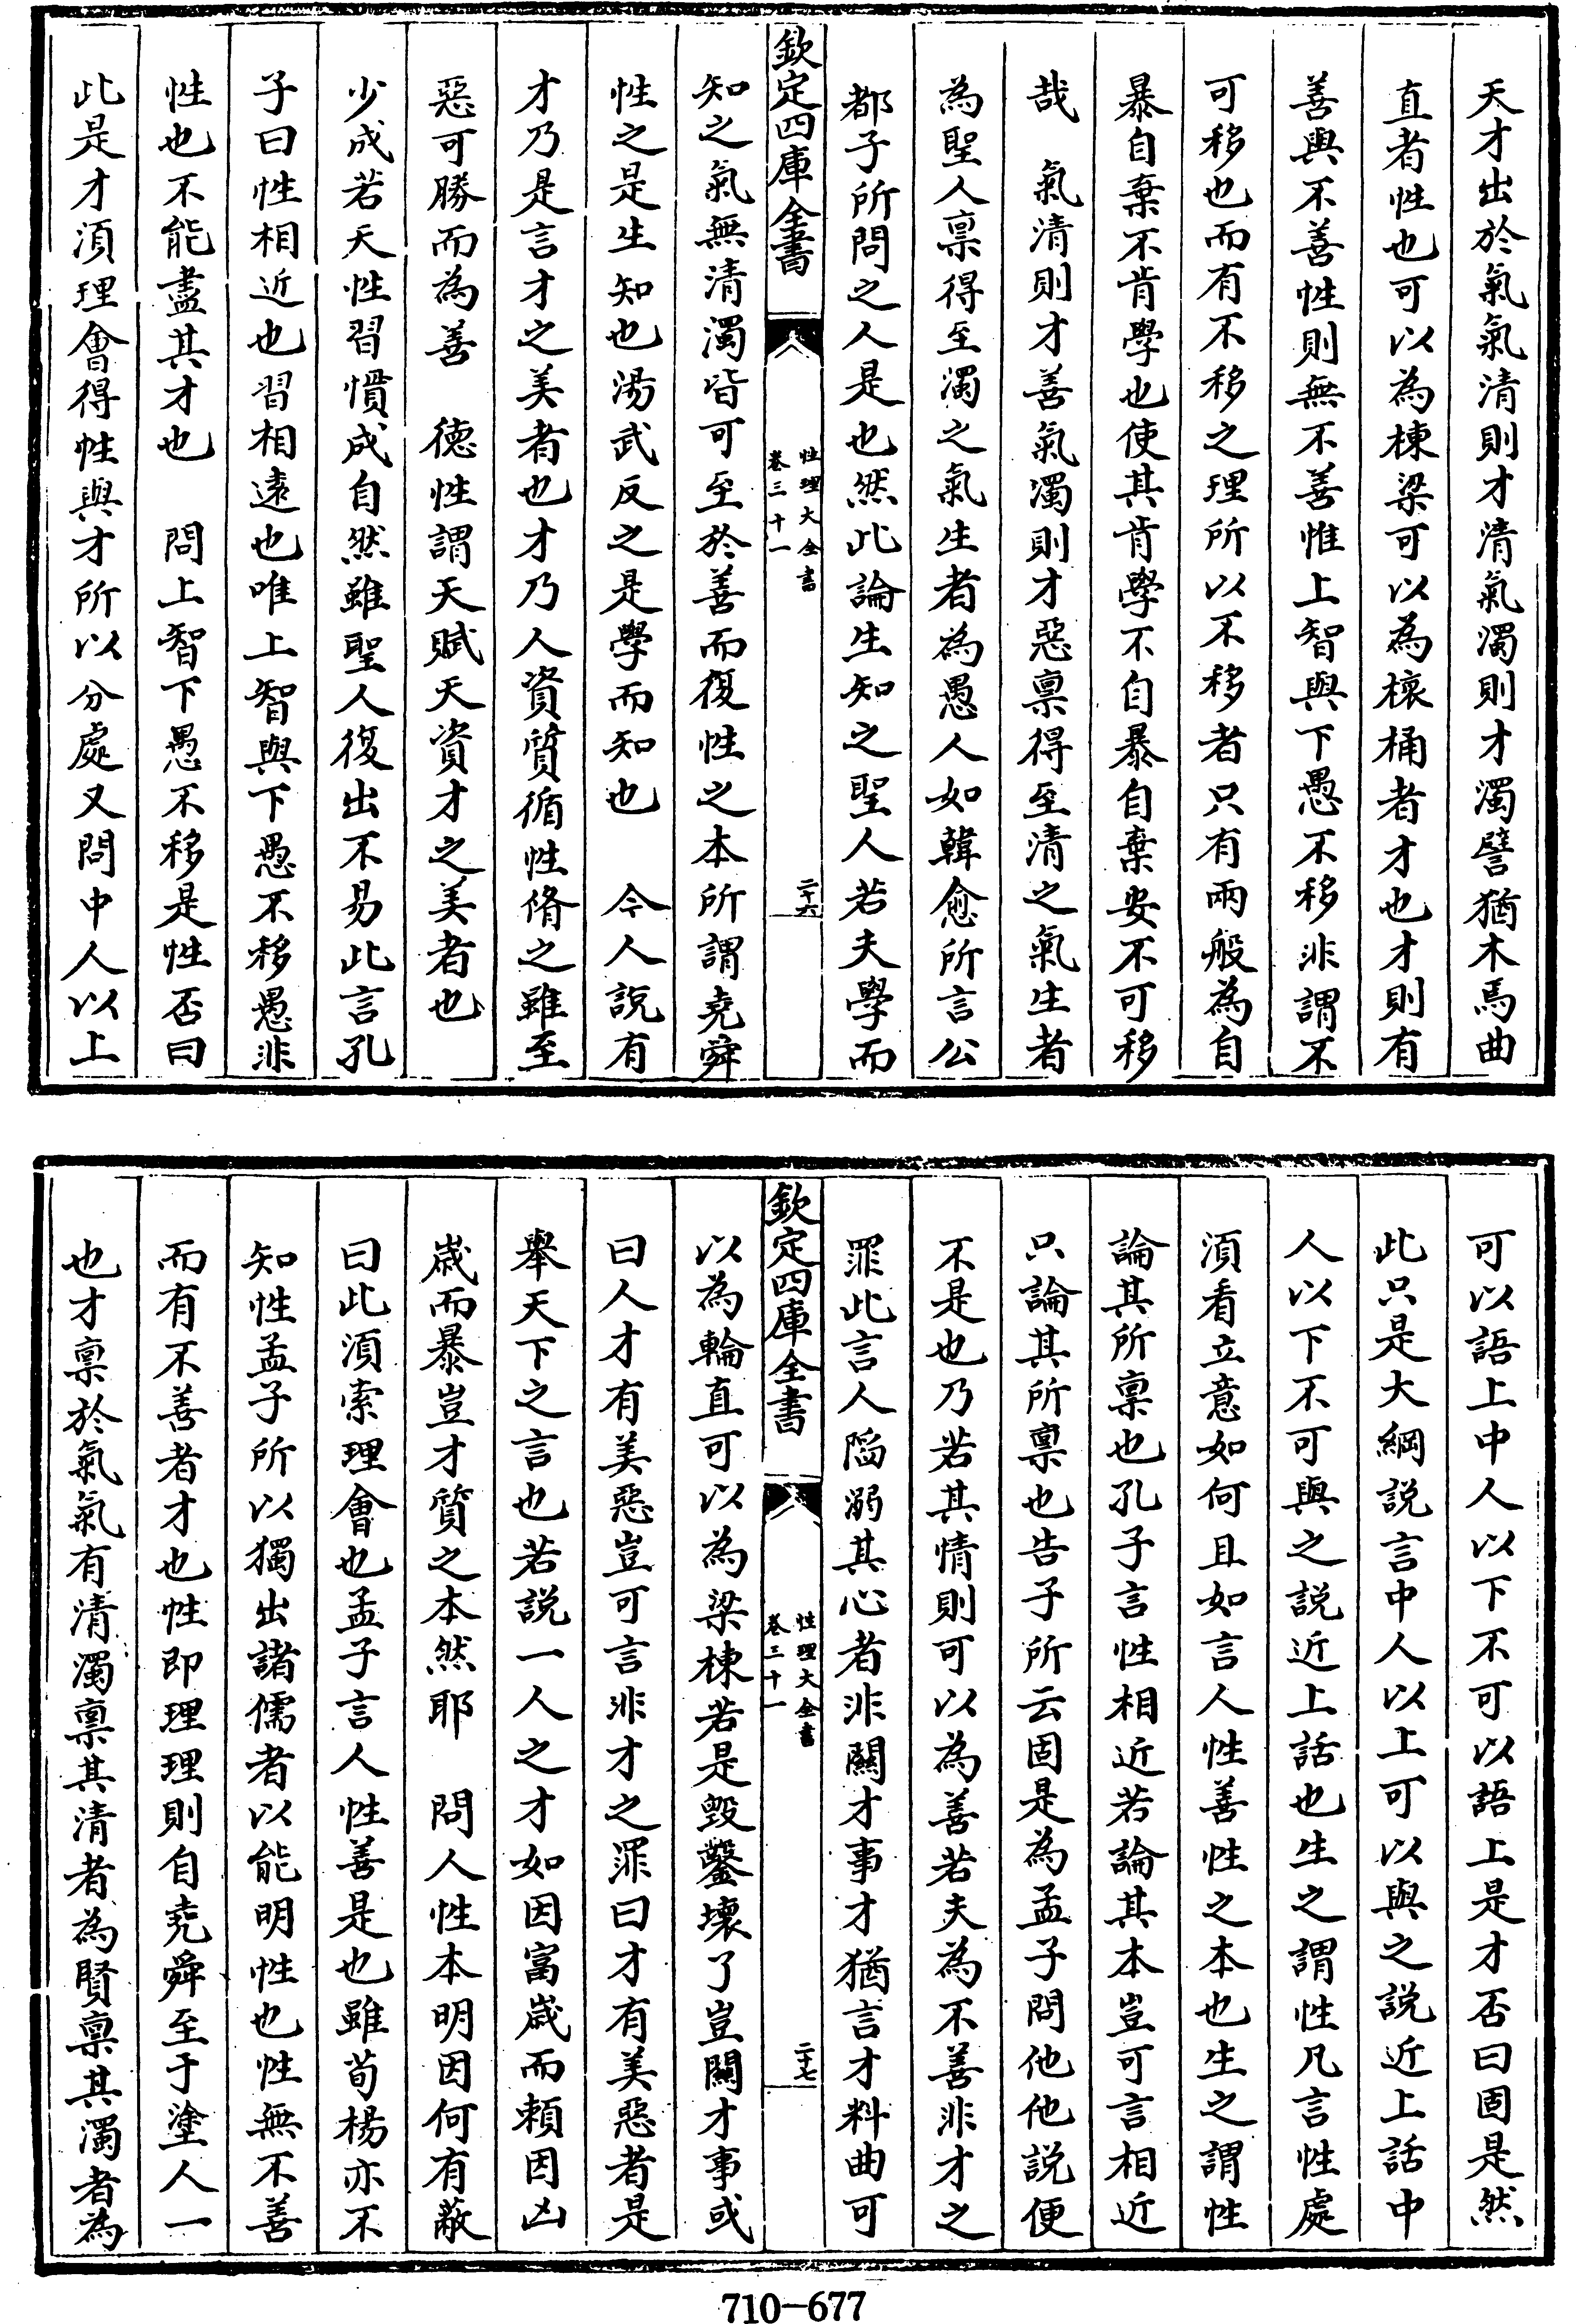 天才出於氣氣清則才清氣濁則才濁譬猶木焉曲
直者性也可以為棟梁可以為榱桷者才也才則有
善與不善性則無不善惟上智與下愚不移非謂不
可移也而有不移之理所以不移者只有兩般為自
暴自棄不肯學也使其肯學不自暴自棄安不可移
哉　氣清則才善氣濁則才惡禀得至清之氣生者
為聖人禀得至濁之氣生者為愚人如韓愈所言公
都子所問之人是也然此論生知之聖人若夫學而
欽定四庫全書
性理大全書
卷三十一
二十六
知之氣無清濁皆可至於善而復性之本所謂堯舜
性之是生知也湯武反之是學而知也　今人説有
才乃是言才之美者也才乃人資質循性脩之雖至
惡可勝而為善　德性謂天賦天資才之美者也
少成若天性習慣成自然雖聖人復出不易此言孔
子曰性相近也習相遠也唯上智與下愚不移愚非
性也不能盡其才也　問上智下愚不移是性否曰
此是才湏理㑹得性與才所以分處又問中人以上
可以語上中人以下不可以語上是才否曰固是然
此只是大綱説言中人以上可以與之説近上話中
人以下不可與之説近上話也生之謂性凡言性處
湏看立意如何且如言人性善性之本也生之謂性
論其所禀也孔子言性相近若論其本豈可言相近
只論其所禀也告子所云固是為孟子問他他説便
不是也乃若其情則可以為善若夫為不善非才之
罪此言人陷溺其心者非關才事才猶言才料曲可
欽定四庫全書
性理大全書
卷三十一
二十七
以為輪直可以為梁棟若是毀鑿壞了豈關才事或
曰人才有美惡豈可言非才之罪曰才有美惡者是
舉天下之言也若説一人之才如因富歲而賴因凶
歲而暴豈才質之本然耶　問人性本明因何有蔽
曰此湏索理㑹也孟子言人性善是也雖荀楊亦不
知性孟子所以獨出諸儒者以能明性也性無不善
而有不善者才也性即理理則自堯舜至于塗人一
也才禀於氣氣有清濁禀其清者為賢禀其濁者為
710-677